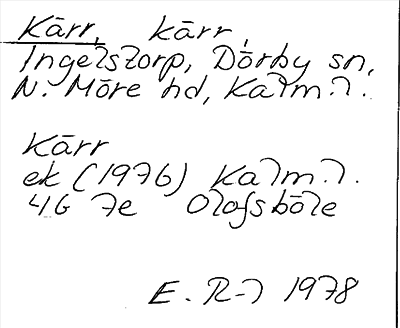 Kärr, kärr,
Ingelstorp, Dörby sn,
N. Möre hd, Kalm. l.
Kärr
ek (1976) Kalm. l.
4G 7e Olofsböle
E. R-l 1978